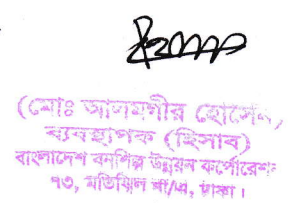 (মোঃ আলমগীর হোসেন)
ব্যবস্থাপক (হিসাব)
বাংলাদেশ বনশিল্প উন্নয়ন কর্পোরেশন
৭৩, মতিঝিল বা/এ, ঢাকা।